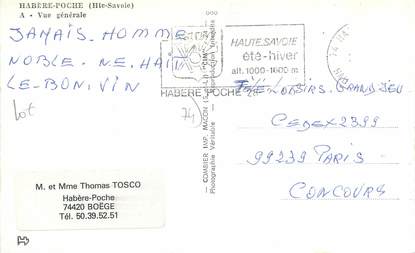 HABÈRE-POCHE (Hte-Savoie)
A - Vue générale
JAMAIS. HOMME
NOBLE. N.E. HAIT
LE. BON. VIN
Lot
74
HAUTE SAVOIE
été-hiver
alt. 1000-1600 m
HABERE POCHE
COMBIER IMP. MACON
Photographie Véritable
LOISIRS. GRAND JEU
CEDEX 2399
99239 PARIS
CONCOURS
M. et Mme Thomas TOSCO
Habère-Poche
74420 BOËGE
Tél. 50.39.52.51